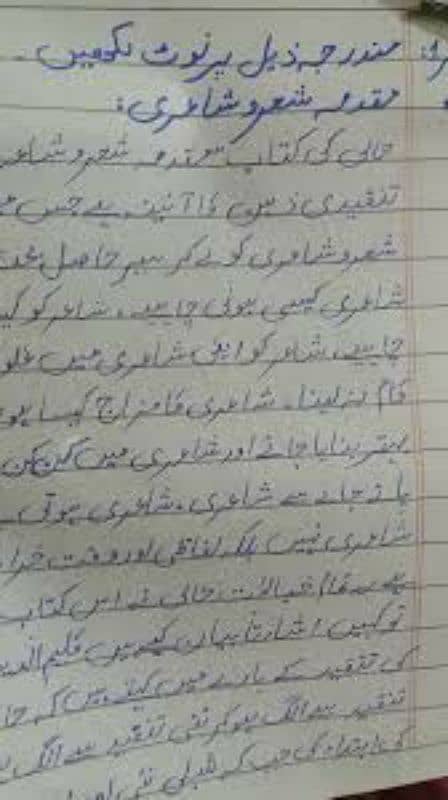 مندرجہ ذیل پر نوٹ لکھیں۔
مقدمہ شعر و شاعری:
حالی کی کتاب مقدمہ شعر و شاعری
تنقیدی ذہن کا آئینہ ہے جس
شعر و شاعری کو لے کر سیر حاصل بحث
شاعری کیسی ہونی چاہیے، شاعر کو
چاہیے، شاعر کو اپنی شاعری میں غلو
کام نہ لینا۔ شاعری کا مزاج کیسا ہو
بہتر بنایا جائے اور شاعری میں کن کن
پائے جانے سے شاعری، شاعری ہوتی
شاعری نہیں بلکہ لفاظی اور وقت
یہ تمام خیالات حالی نے اس کتاب
تو کہیں اشارتاً بیان کیے ہیں کلیم الدین
کی تنقید کے بارے میں کہتے ہیں کہ
تنقید سے الگ ہو کر نئی تنقید سے الگ
کی ابتداء کی جب کہ شبلی نئی اور